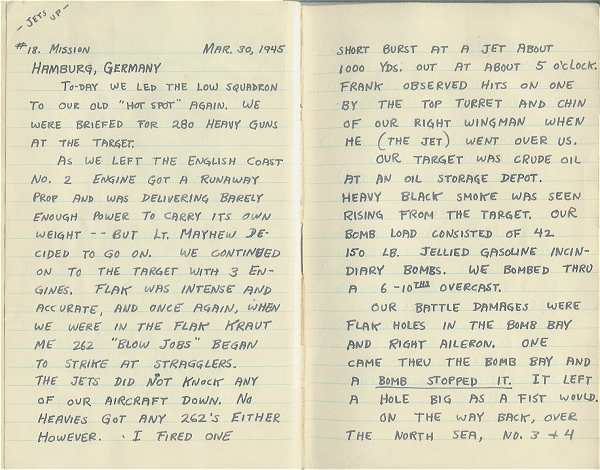 - JETS UP -
#18. MISSION MAR. 30, 1945
HAMBURG, GERMANY
TO-DAY WE LED THE LOW SQUADRON
TO OUR OLD "HOT SPOT" AGAIN. WE
WERE BRIEFED FOR 280 HEAVY GUNS
AT THE TARGET.
AS WE LEFT THE ENGLISH COAST
NO. 2 ENGINE GOT A RUNAWAY
PROP AND WAS DELIVERING BARELY
ENOUGH POWER TO CARRY ITS OWN
WEIGHT -- BUT LT. MAYHEW DE-
CIDED TO GO ON. WE CONTINUED
ON TO THE TARGET WITH 3 EN-
GINES. FLAK WAS INTENSE AND
ACCURATE, AND ONCE AGAIN, WHEN
WE WERE IN THE FLAK KRAUT
ME 262 "BLOW JOBS" BEGAN
TO STRIKE AT STRAGGLERS.
THE JETS DID NOT KNOCK ANY
OF OUR AIRCRAFT DOWN. NO
HEAVIES GOT ANY 262'S EITHER
HOWEVER. I FIRED ONE
SHORT BURST AT A JET ABOUT
1000 YDS. OUT AT ABOUT 5 O'CLOCK.
FRANK OBSERVED HITS ON ONE
BY THE TOP TURRET AND CHIN
OF OUR RIGHT WINGMAN WHEN
HE (THE JET) WENT OVER US.
OUR TARGET WAS CRUDE OIL
AT AN OIL STORAGE DEPOT.
HEAVY BLACK SMOKE WAS SEEN
RISING FROM THE TARGET. OUR
BOMB LOAD CONSISTED OF 42
150 LB. JELLIED GASOLINE INCIN-
DIARY BOMBS. WE BOMBED THRU
A 6-10THS OVERCAST.
OUR BATTLE DAMAGES WERE
FLAK HOLES IN THE BOMB BAY
AND RIGHT AILERON. ONE
CAME THRU THE BOMB BAY AND
A BOMB STOPPED IT. IT LEFT
A HOLE BIG AS A FIST WOULD.
ON THE WAY BACK, OVER
THE NORTH SEA, NO. 3 + 4